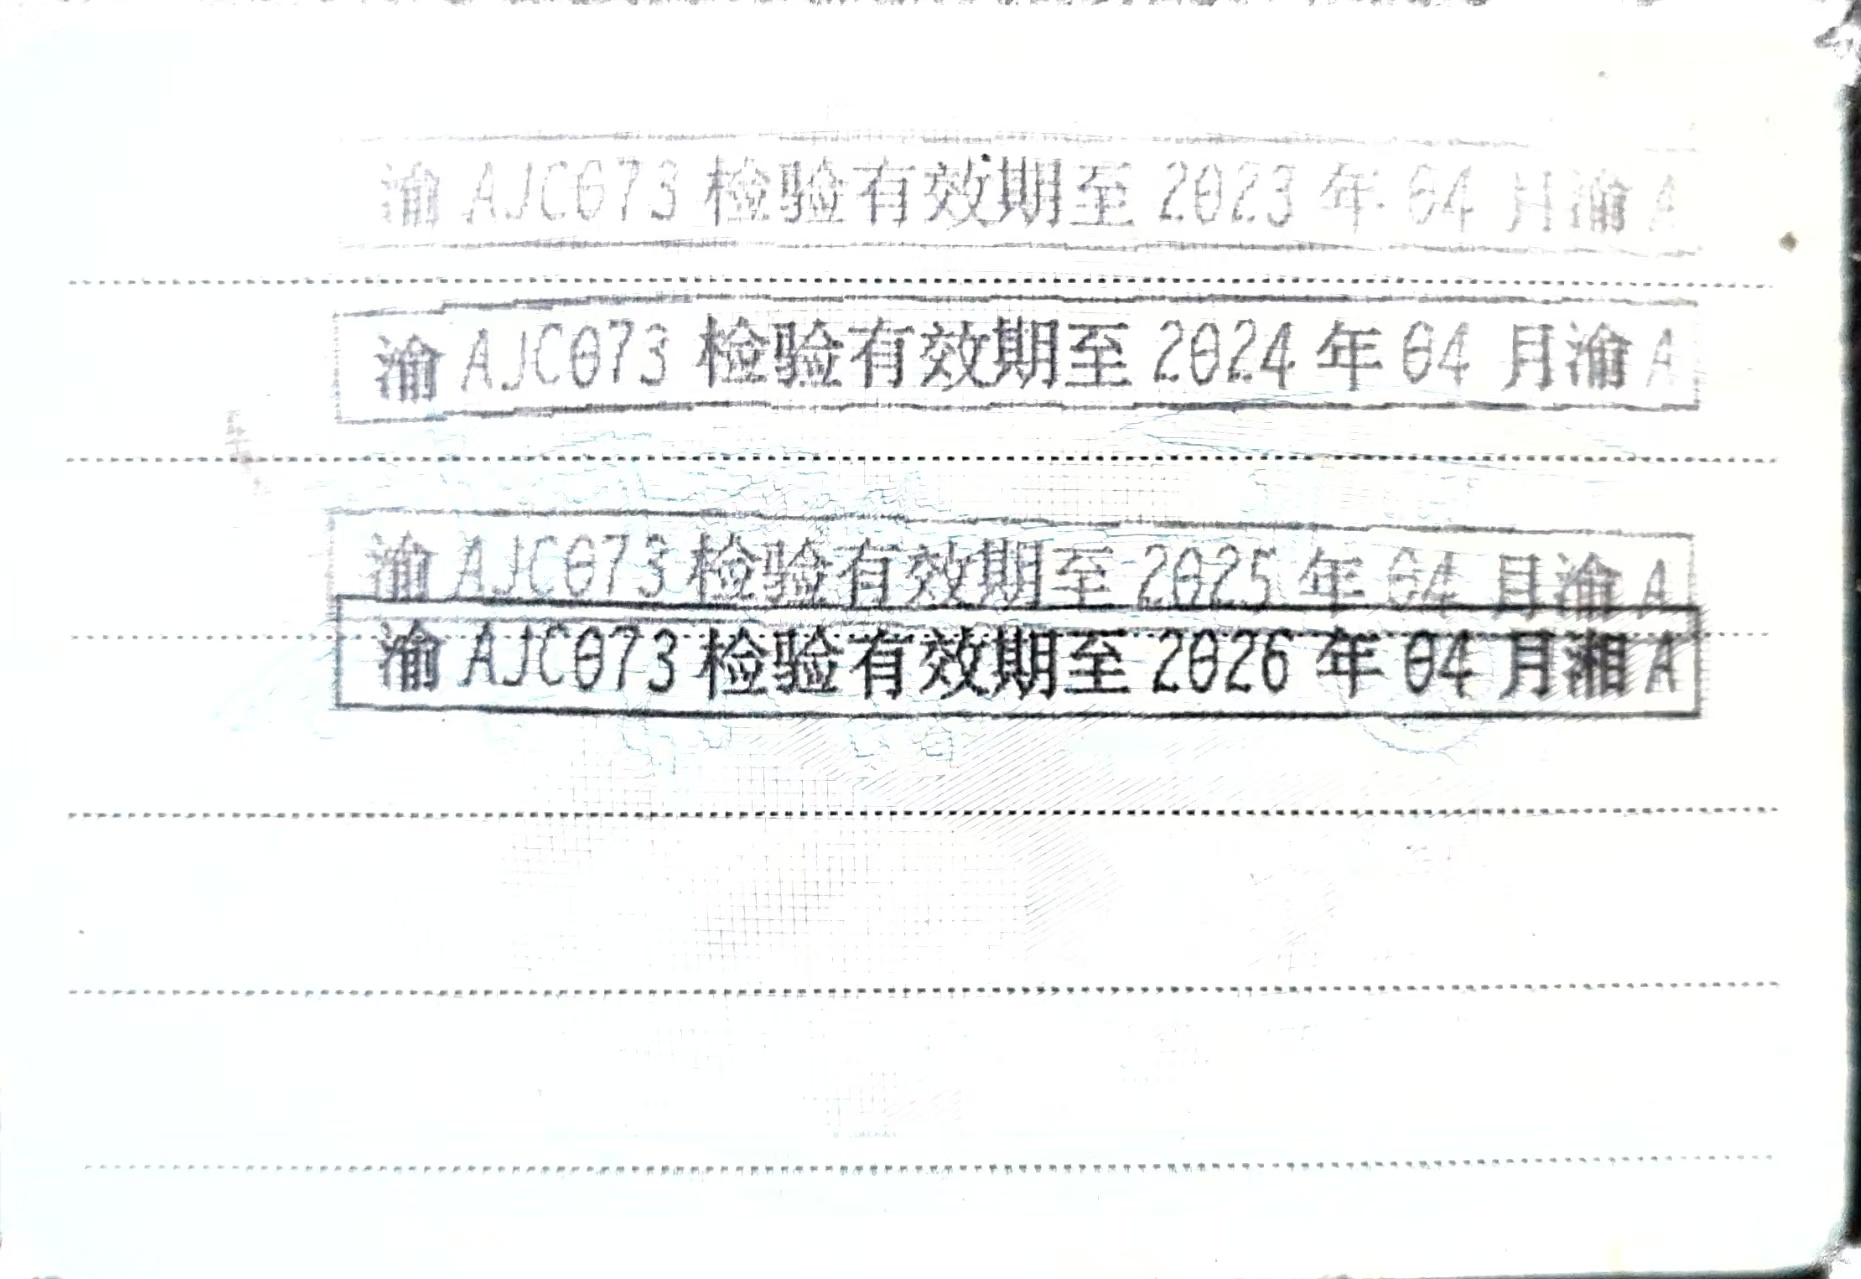 渝AJC073检验有效期至2023年04月渝A
渝AJC073检验有效期至2024年04月渝A
渝AJC073检验有效期至2025年04月渝A
渝AJC073检验有效期至2026年04月湘A